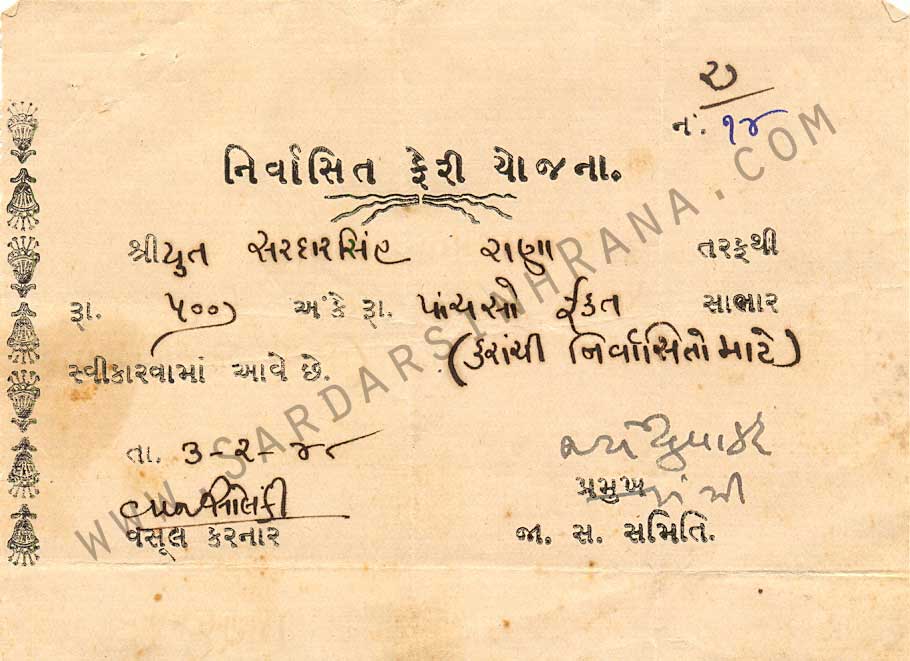 નં. ૧૪
નિર્વાસિત ફેરી યોજના.
શ્રીયુત સરદારસિંહ રાણા તરફથી
રૂા. ૫૦૦) અંકે રૂા. પાંચસો ફક્ત સાભાર
(કરાંચી નિર્વાસિતો માટે)
સ્વીકારવામાં આવે છે.
તા. ૩-૨-૪૮
પ્રમુખ
વસૂલ કરનાર
જા. સ. સમિતિ.
WWW.SARDARSINHRANA.COM